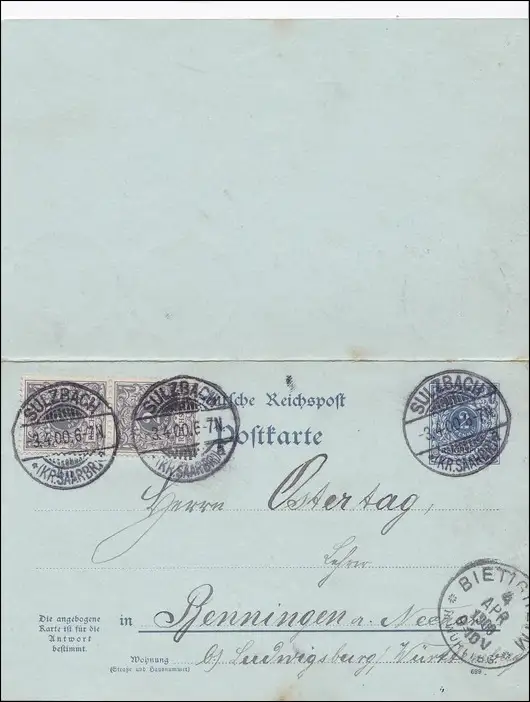 Deutsche Reichspost
Postkarte
SULZBACH
3.4.00.6-7N.
*(KR.SAARBR.)*
SULZBACH
3.4.00.6-7N.
*(KR.SAARBR.)*
SULZBACH
3.4.00.6-7N.
*(KR.SAARBR.)*
2
Herrn Ostertag,
Lehrer
in Benningen a. Neckar
Die angebogene
Karte ist für die
Antwort
bestimmt.
Wohnung
(Straße und Hausnummer)
b/ Ludwigsburg/Württemberg
BIETIGHEIM
4
APR
4